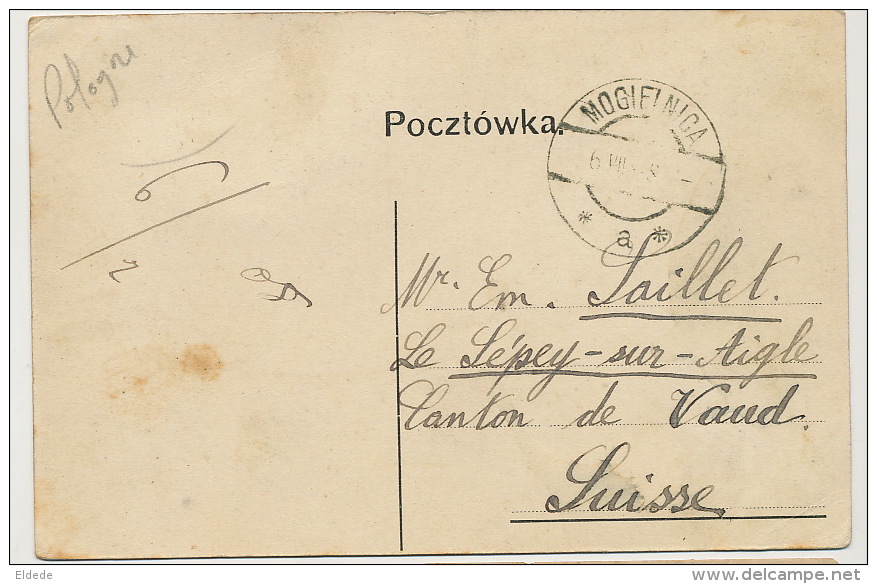 Pologne
Pocztówka.
MOGIELNICA
6 VII
* a *
Mr. Em. Saillet.
Le Sépey-sur-Aigle
Canton de Vaud.
Suisse
Eldede
www.delcampe.net